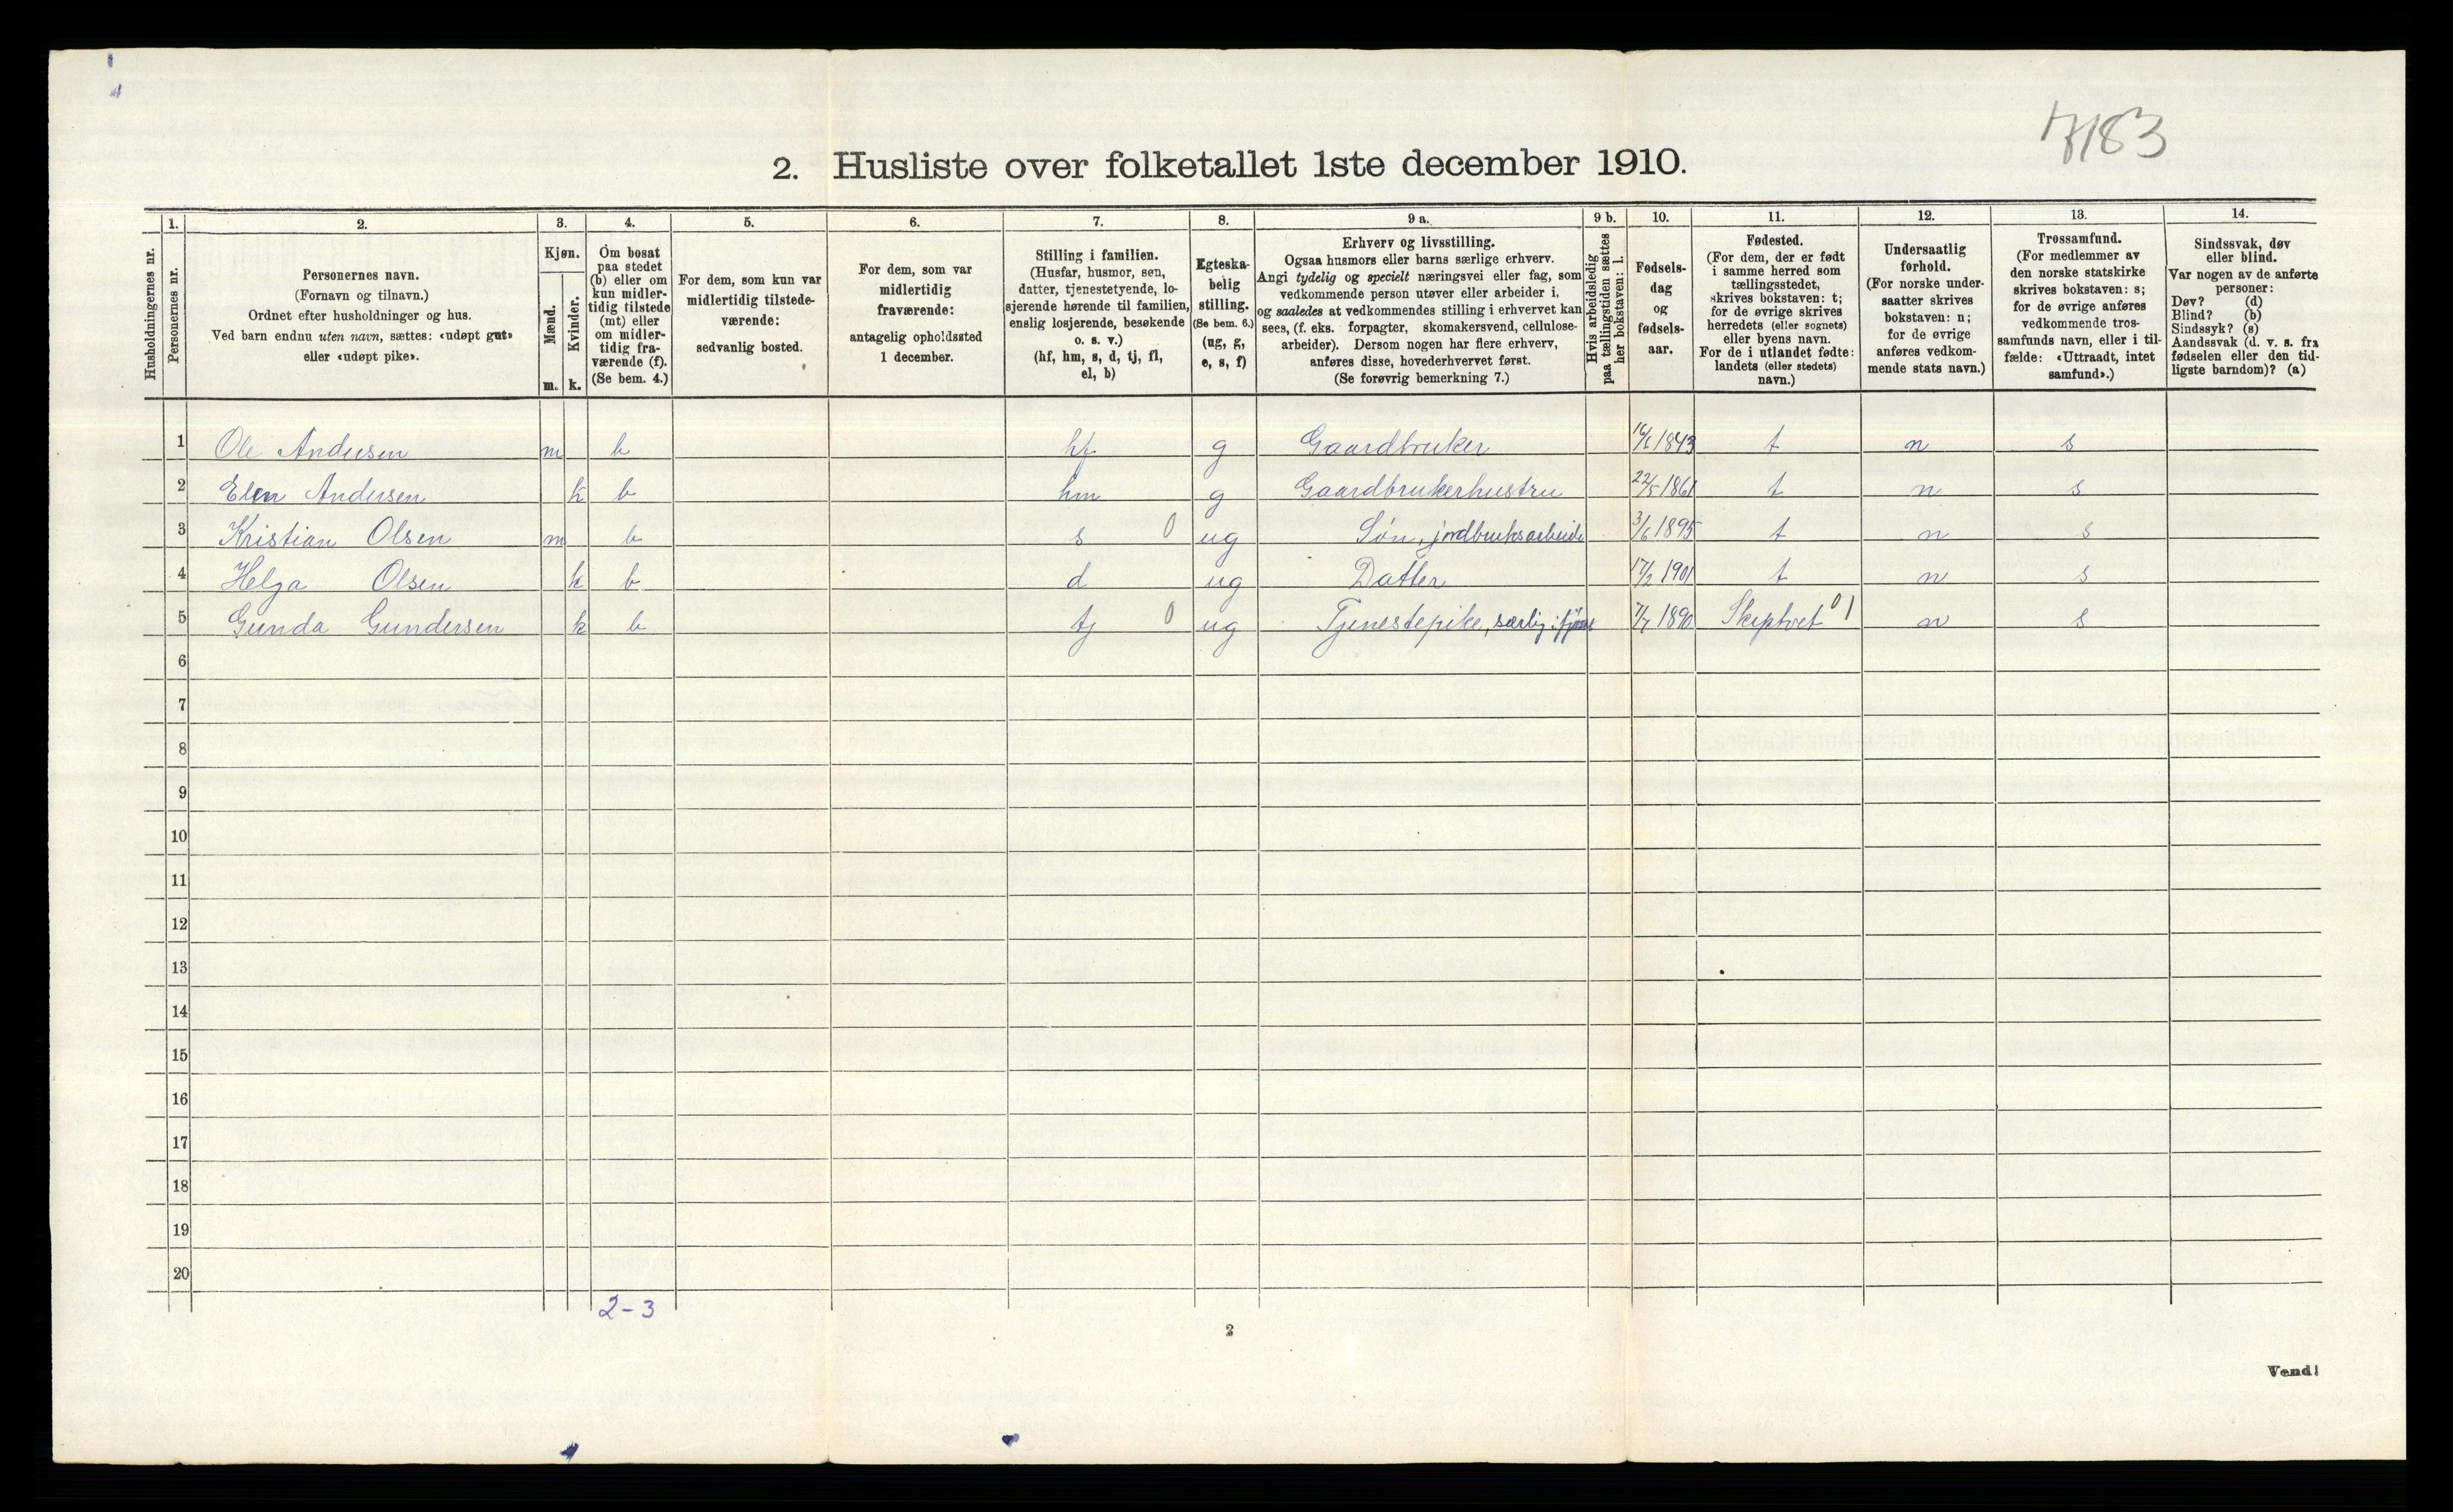 7183
2. Husliste over folketallet 1ste december 1910.
Husholdningernes nr.
1.
Personernes nr.
2.
Personernes navn.
(Fornavn og tilnavn.)
Ordnet efter husholdninger og hus.
Ved barn endnu uten navn, sættes: «udøpt gut»
eller «udøpt pike».
3.
Kjøn.
Mænd.
Kvinder.
m. k.
4.
Om bosat
paa stedet
(b) eller om
kun midler-
tidig tilstede
(mt) eller
om midler-
tidig fra-
værende (f).
(Se bem. 4.)
5.
For dem, som kun var
midlertidig tilstede-
værende:
sedvanlig bosted.
6.
For dem, som var
midlertidig
fraværende:
antagelig opholdssted
1 december.
7.
Stilling i familien.
(Husfar, husmor, søn,
datter, tjenestetyende, lo-
sjerende hørende til familien,
enslig losjerende, besøkende
o. s. v.)
(hf, hm, s, d, tj, fl,
el, b)
8.
Egteska-
belig
stilling.
(Se bem. 6.)
(ug, g,
e, s, f)
9 a.
Erhverv og livsstilling.
Ogsaa husmors eller barns særlige erhverv.
Angi tydelig og specielt næringsvei eller fag, som
vedkommende person utøver eller arbeider i,
og saaledes at vedkommendes stilling i erhvervet kan
sees, (f. eks. forpagter, skomakersvend, cellulose-
arbeider). Dersom nogen har flere erhverv,
anføres disse, hovederhvervet først.
(Se forøvrig bemerkning 7.)
9 b.
Hvis arbeidsledig
paa tællingstiden sættes
her bokstaven: l.
10.
Fødsels-
dag
og
fødsels-
aar.
11.
Fødested.
(For dem, der er født
i samme herred som
tællingsstedet,
skrives bokstaven: t;
for de øvrige skrives
herredets (eller sognets)
eller byens navn.
For de i utlandet fødte:
landets (eller stedets)
navn.)
12.
Undersaatlig
forhold.
(For norske under-
saatter skrives
bokstaven: n;
for de øvrige
anføres vedkom-
mende stats navn.)
13.
Trossamfund.
(For medlemmer av
den norske statskirke
skrives bokstaven: s;
for de øvrige anføres
vedkommende tros-
samfunds navn, eller i til-
fælde: «Uttraadt, intet
samfund».)
14.
Sindssvak, døv
eller blind.
Var nogen av de anførte
personer:
Døv? (d)
Blind? (b)
Sindssyk? (s)
Aandssvak (d. v. s. fra
fødselen eller den tid-
ligste barndom)? (a)
1 Ole Andersen m b hf g Gaardbruker 1843 t n s
2 Elen Andersen k b hm g Gaardbrukerhustru 22/5 1861 t n s
3 Kristian Olsen m b s 0 ug Søn, jordbruksarbeide 3/6 1895 t n s
4 Helga Olsen k b d ug Datter 17/2 1901 t n s
5 Gunda Gundersen k b tj 0 ug Tjenestepike, særlig i 7/7 1890 Skiptvet 01 n s
6
7
8
9
10
11
12
13
14
15
16
17
18
19
20
2-3
2
Vend!